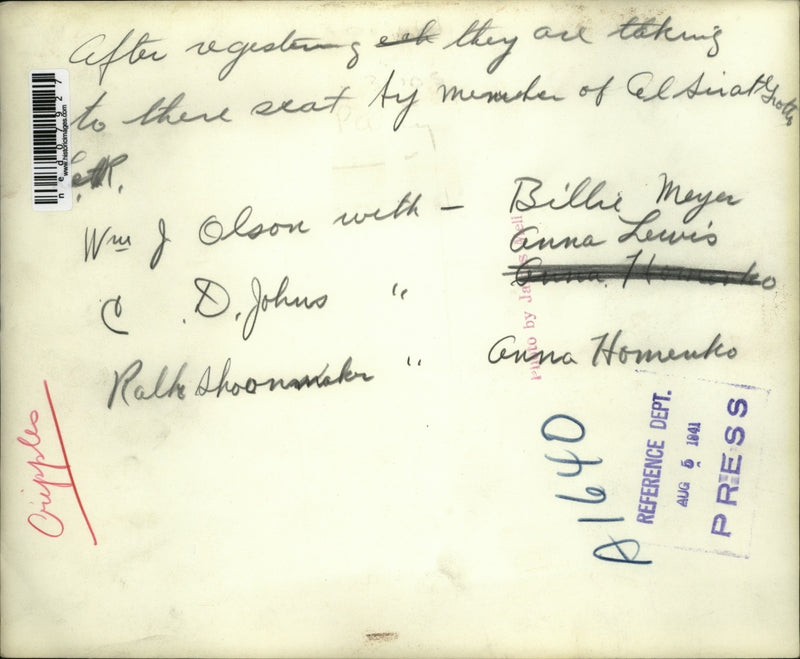 After registering they are taking
to there seat by member of Al Sirat Grotto
L.R.
Wm J Olson with - Billie Meyer
Anna Lewis
Anna Homenko
C. D. Johns " 
Ralh Shoonmaker " Anna Homenko
Cripples
A1640
REFERENCE DEPT.
AUG 5 1941
PRESS
Photo by Ja
ned07927
www.historicimages.com